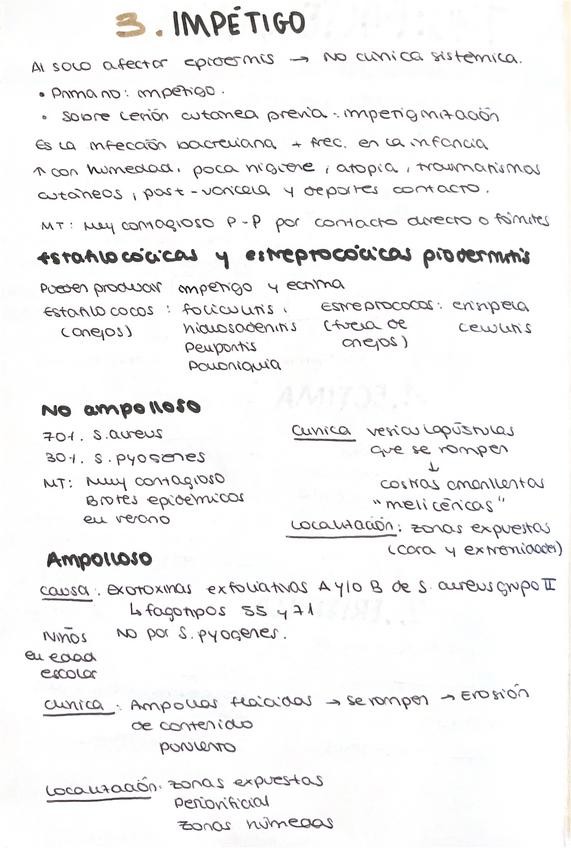 3. IMPÉTIGO
Al solo afectar epidermis → No clínica sistémica.
• Primario: impétigo.
• Sobre lesión cutánea previa: impetiginización
Es la infección bacteriana + frec. en la infancia
↑ con humedad, poca higiene, atopia, traumatismos
cutáneos, post-varicela y deportes contacto.
MT: Muy contagioso P-P por contacto directo o fómites
Estafilocócicas y estreptocócicas piodermitis
Pueden producir impétigo y ectima
Estafilococos: foliculitis, Estreptococos: erisipela
(anejos) hidrosadenitis (fuera de celulitis
Periporitis anejos)
Paroniquia
No ampolloso
70%. S. aureus
30%. S. pyogenes
MT: Muy contagioso
Brotes epidémicos
en verano
Clínica vesículopústulas
que se rompen
↓
costras amarillentas
"melicéricas"
Localización: zonas expuestas
(cara y extremidades)
Ampolloso
Causa: Exotoxinas exfoliativas A y/o B de S. aureus grupo II
↳ fagotipos 55 y 71
Niños No por S. pyogenes.
en edad
escolar
Clínica: Ampollas flácidas → se rompen → Erosión
de contenido
purulento
Localización: zonas expuestas
Periorificial
zonas húmedas